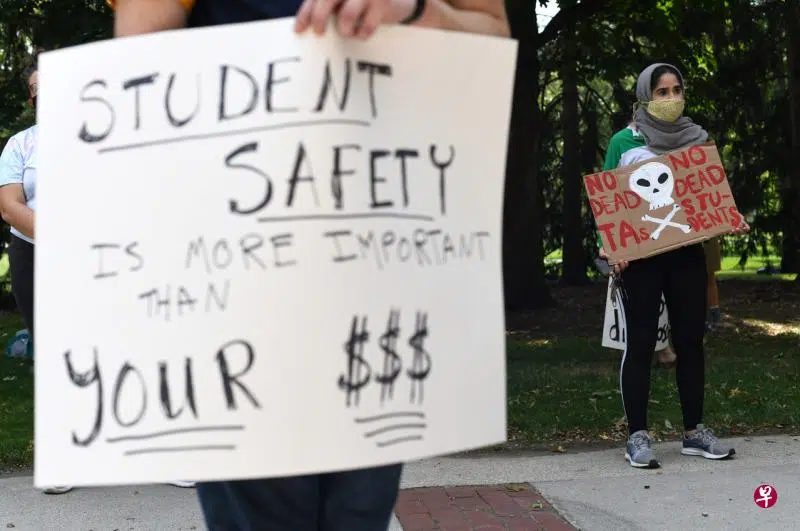 STUDENT
SAFETY
IS MORE IMPORTANT
THAN
YOUR $$$
NO
DEAD
TAs
NO
DEAD
STU-
DENTS
早